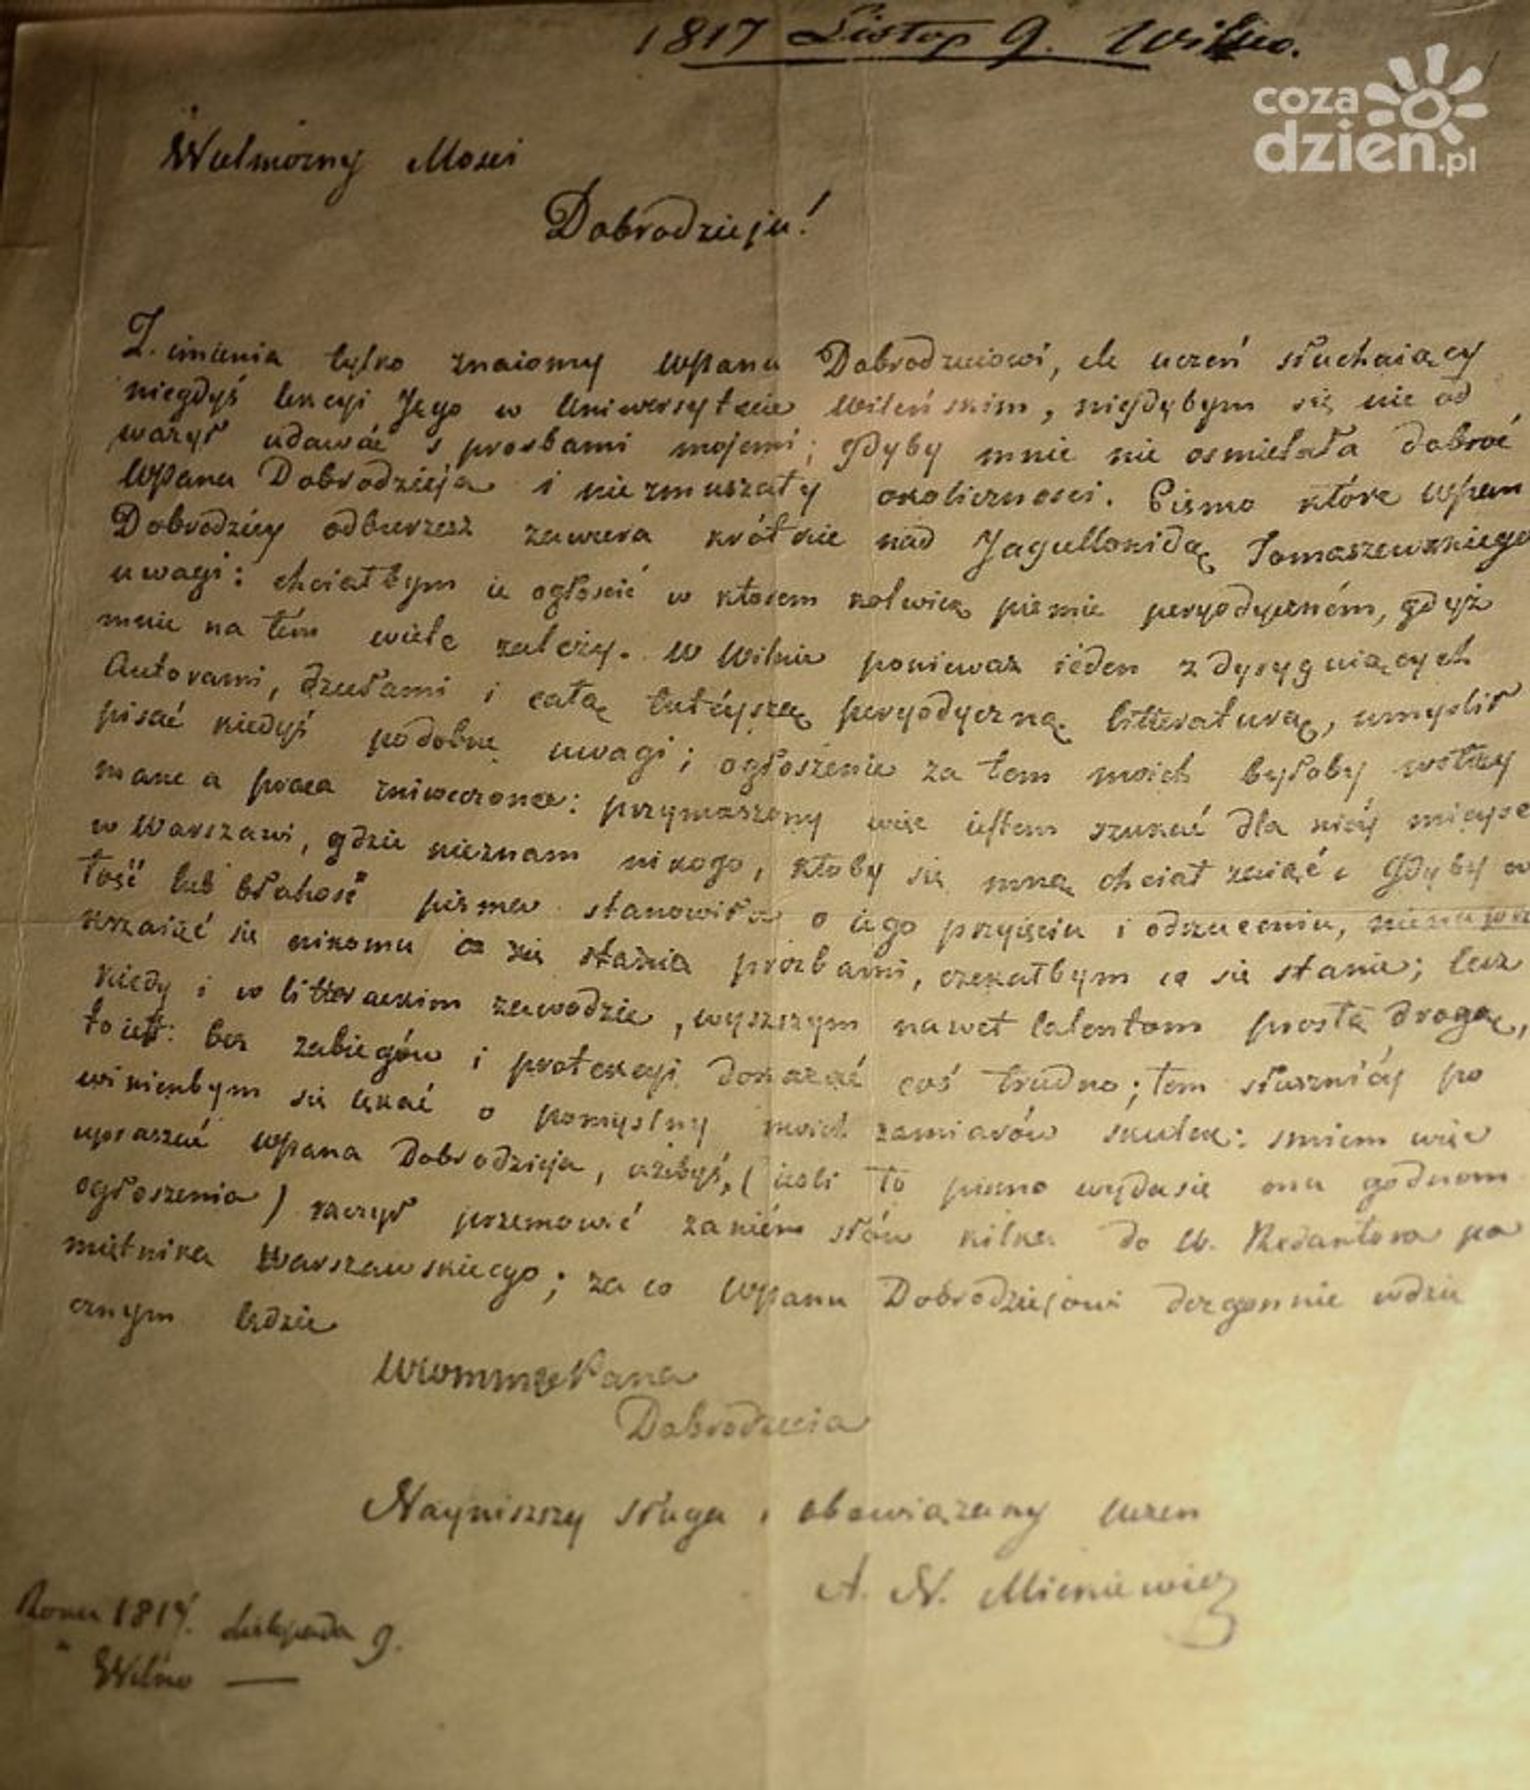 1817 Listop 9. Wilno.
coza
dzien.pl
Wielmożny Mosci
Dobrodzieju!
Z imienia tylko znaiomy WPanu Dobrodzieiowi, ale uczeń słuchaiący
niegdyś lekcyi Jego w Uniwersytecie Wileńskim, nigdybym się nie od
ważył udawać s prosbami mojemi; gdyby mnie nie osmielała dobroć
WPana Dobrodzieja i nie zmuszały okoliczności. Pismo które WPan
Dobrodziey odbierzesz zawiera krótkie nad Jagiellonidą Tomaszewskiego
uwagi: chciałbym ie ogłosić w ktorem kolwiek pismie peryodyczném, gdyż
mnie na tém wiele zależy. W Wilnie ponieważ ieden z dyryguiących
Autorami, dziełami i całą tuteyszą peryodyczną litteraturą, umyslił
pisać kiedyś podobne uwagi; ogłoszenie za tem moich byłoby wstrzy
mane a praca zniweczona: przymuszony więc iestem szukać dla niéy mieysc
w Warszawi, gdzie nieznam nikogo, ktoby się mną chciał zaiąć. Gdyby w
tość lub błahość pisma stanowiła o iego przyięciu i odrzuceniu,
się nikomu prozbami, czekałbym co się stanie; lecz
kiedy i w litterackim zawodzie, wyszszym nawet talentom prostą drogą,
to iest: bez zabiegów i protekcyi dokazać coś trudno; tem słuszniéy po
winienbym się lękać o pomyslny moich zamiarów skutek: smiem więc
upraszać WPana Dobrodzieja, ażebyś, (ieśli to pismo wyda się mu godnem
ogłoszenia) raczył przemowić za niém słów kilka do W. Redaktora pa
miętnika Warszawskiego; za co WPanu Dobrodziejowi dozgonnie wdzię
cznym będzie
Pana
Dobrodzieia
Nayniższy sługa i obowiązany uczeń
A. N. Mickiewicz
Roku 1817. Listopada 9.
Wilno —